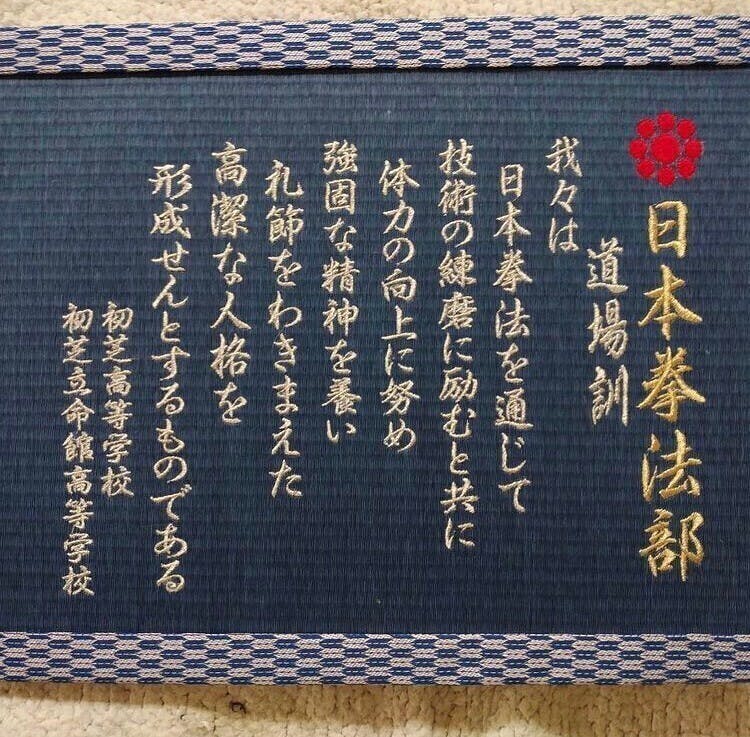 日本拳法部
道場訓
我々は
日本拳法を通じて
技術の練磨に励むと共に
体力の向上に努め
強固な精神を養い
礼節をわきまえた
高潔な人格を
形成せんとするものである
初芝高等学校
初芝立命館高等学校